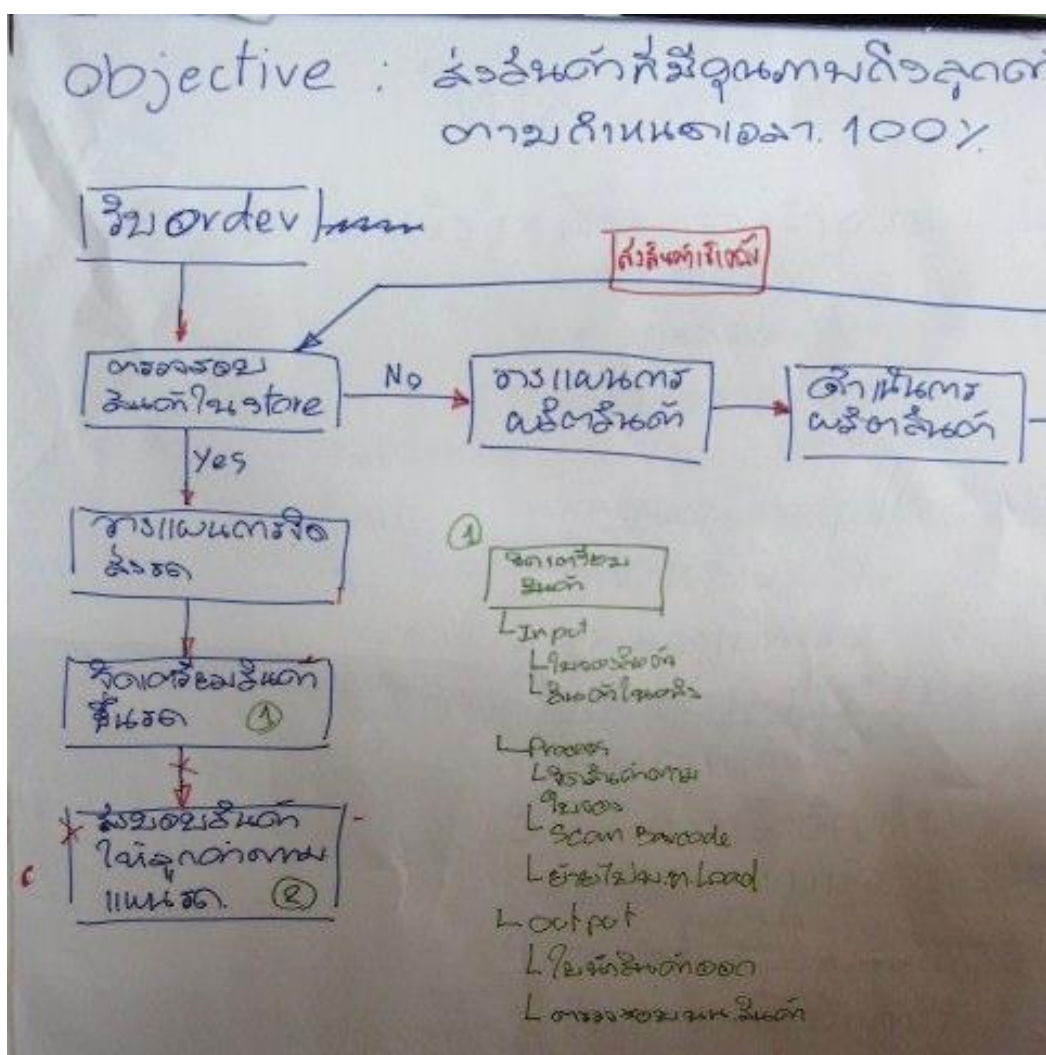 objective : ส่งสินค้าที่มีคุณภาพถึงลูกค้
ตามกำหนดเวลา 100%
รับ order
ส่งสินค้าเข้าคลัง
ตรวจสอบ
สินค้าใน store
No
วางแผนการ
ผลิตสินค้า
ดำเนินการ
ผลิตสินค้า
Yes
วางแผนการจัด
ส่งรถ
จัดเตรียมสินค้า
ขึ้นรถ ①
ส่งมอบสินค้า
ให้ลูกค้าตาม
แผนรถ. ②
①
จัดเตรียม
สินค้า
Input
ใบจองสินค้า
สินค้าในคลัง
Process
จัดสินค้าตาม
ใบจอง
Scan Barcode
ย้ายไป พ.ท. Load
output
สินค้าออก
ตรวจสอบ สินค้า